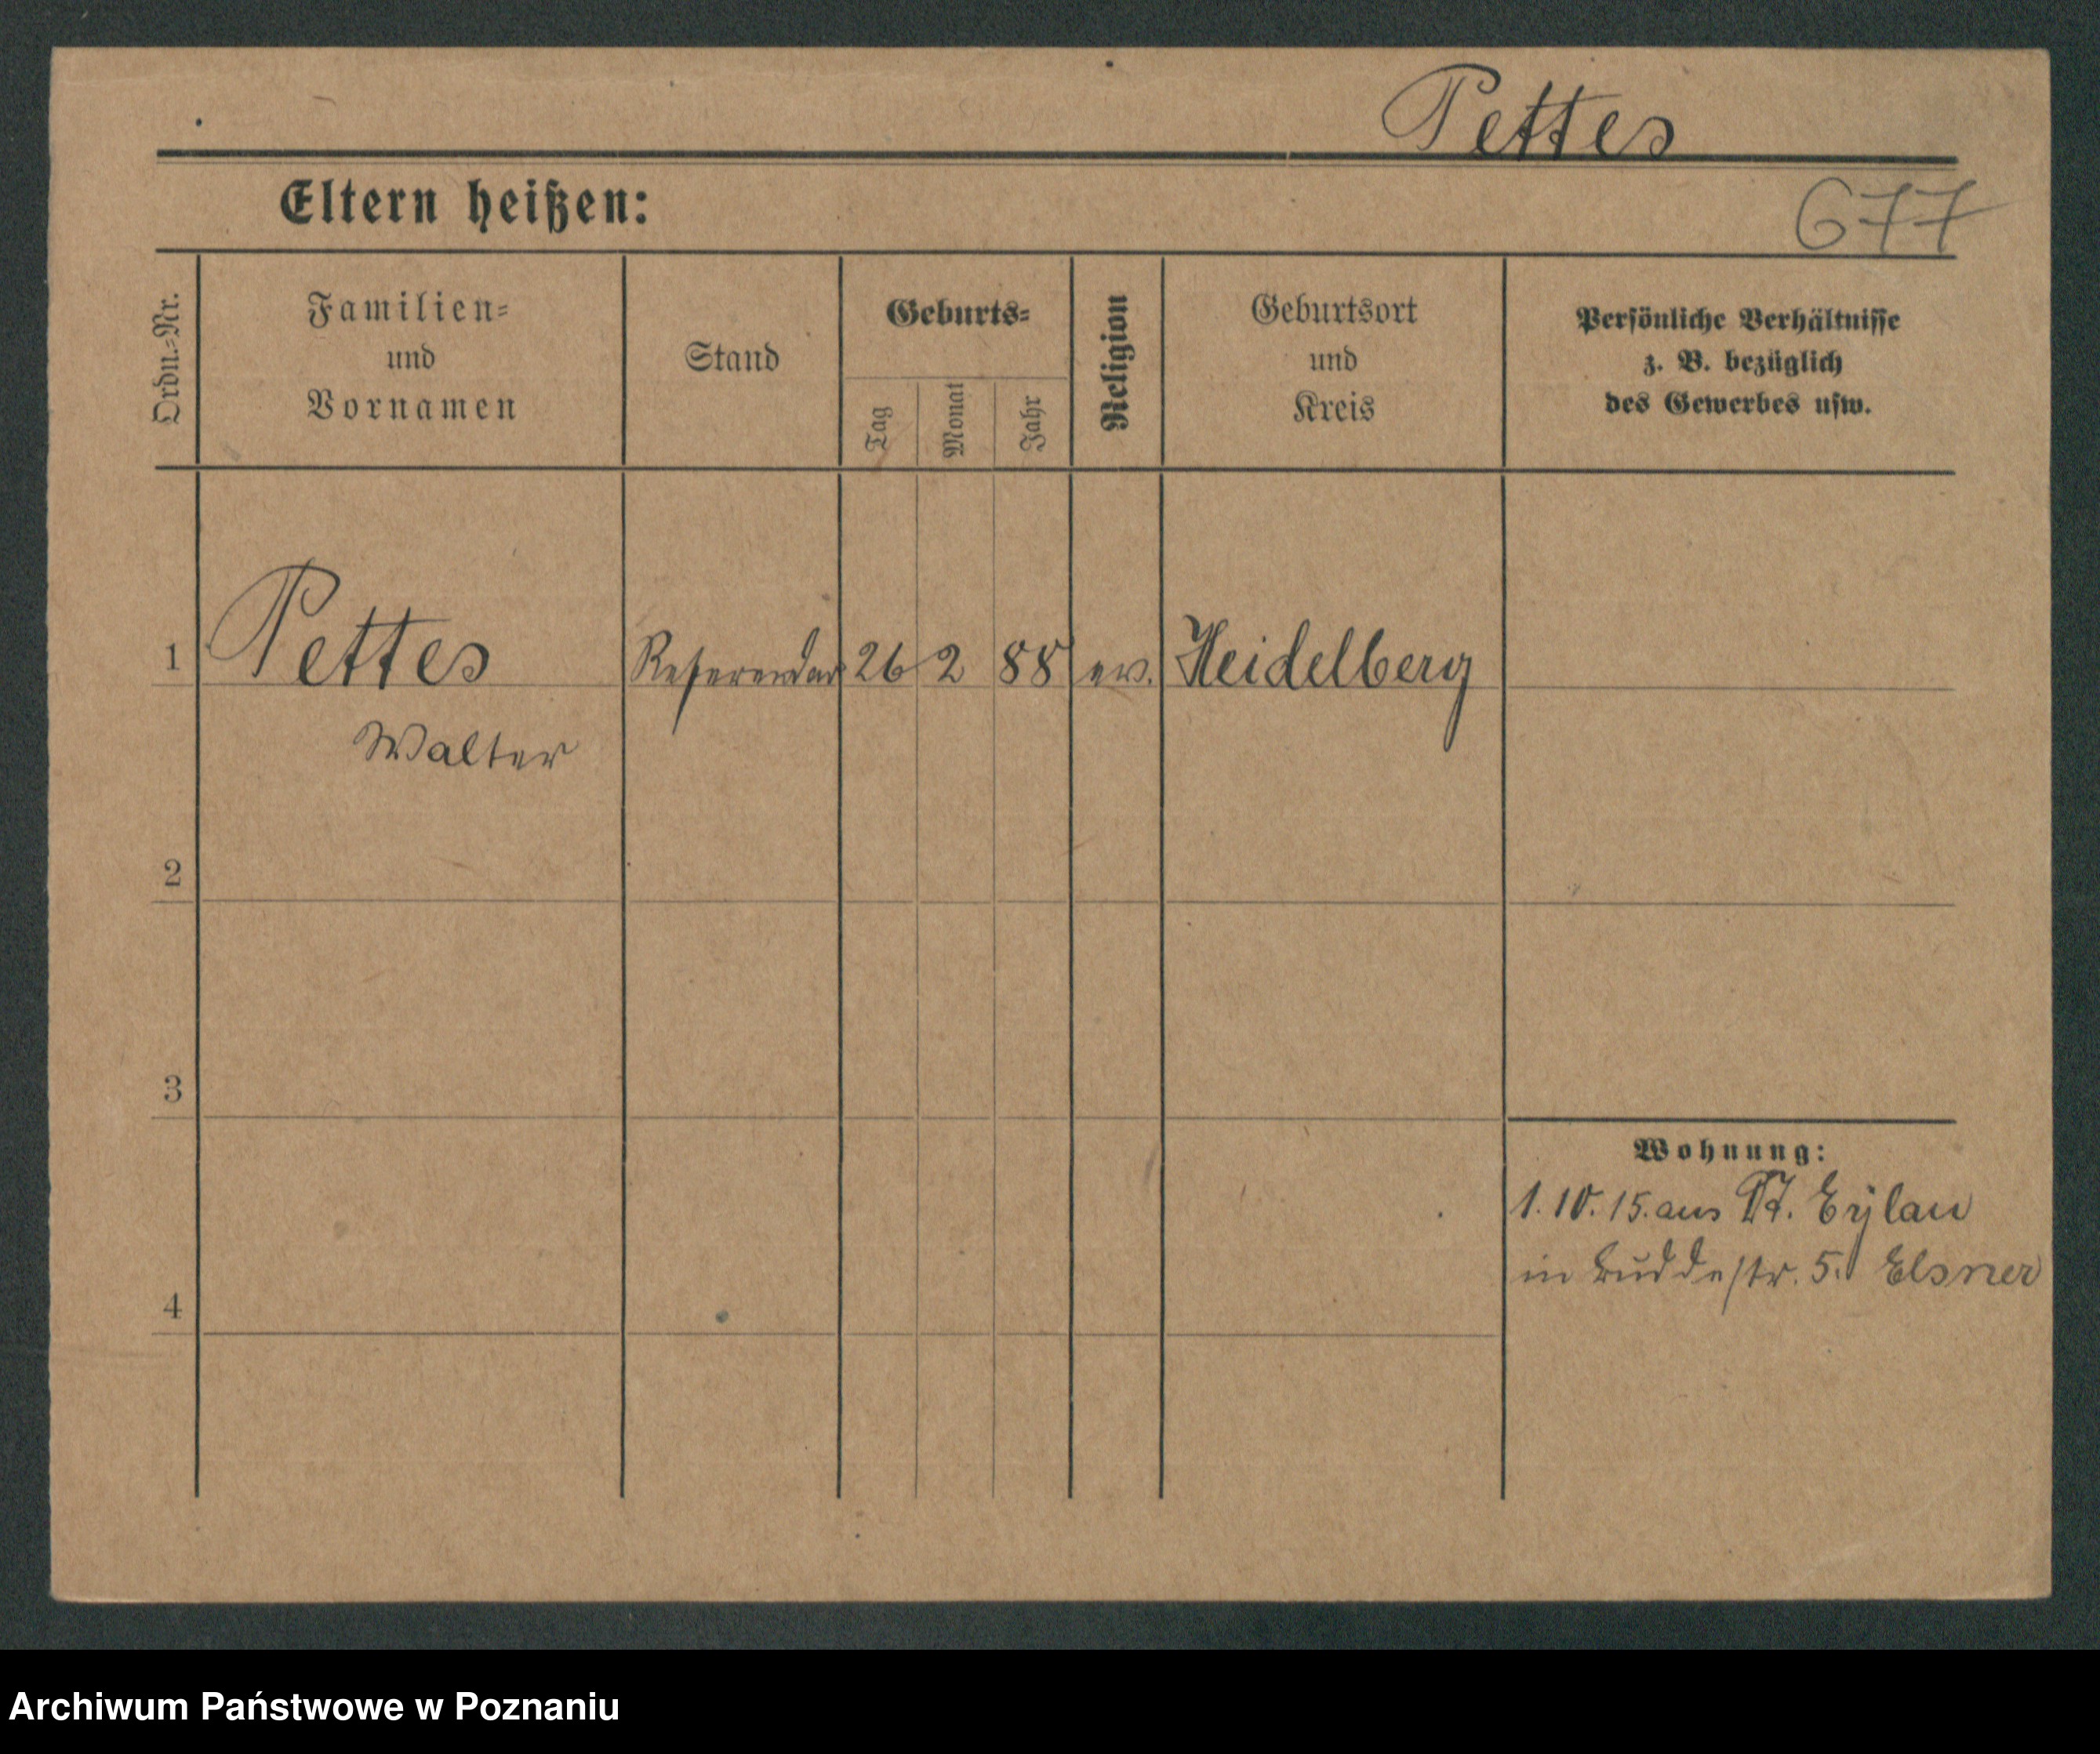 Pettes
Eltern heißen:
677
Ordn.-Nr.
Familien-
und
Vornamen
Stand
Geburts-
Tag
Monat
Jahr
Religion
Geburtsort
und
Kreis
Persönliche Verhältnisse
z. B. bezüglich
des Gewerbes usw.
1 Pettes Referendar 26 2 88 ev. Heidelberg
Walter
2
3
Wohnung:
1.10.15. aus Dt. Eylau
in Buddestr. 5. Elsner
4
Archiwum Państwowe w Poznaniu